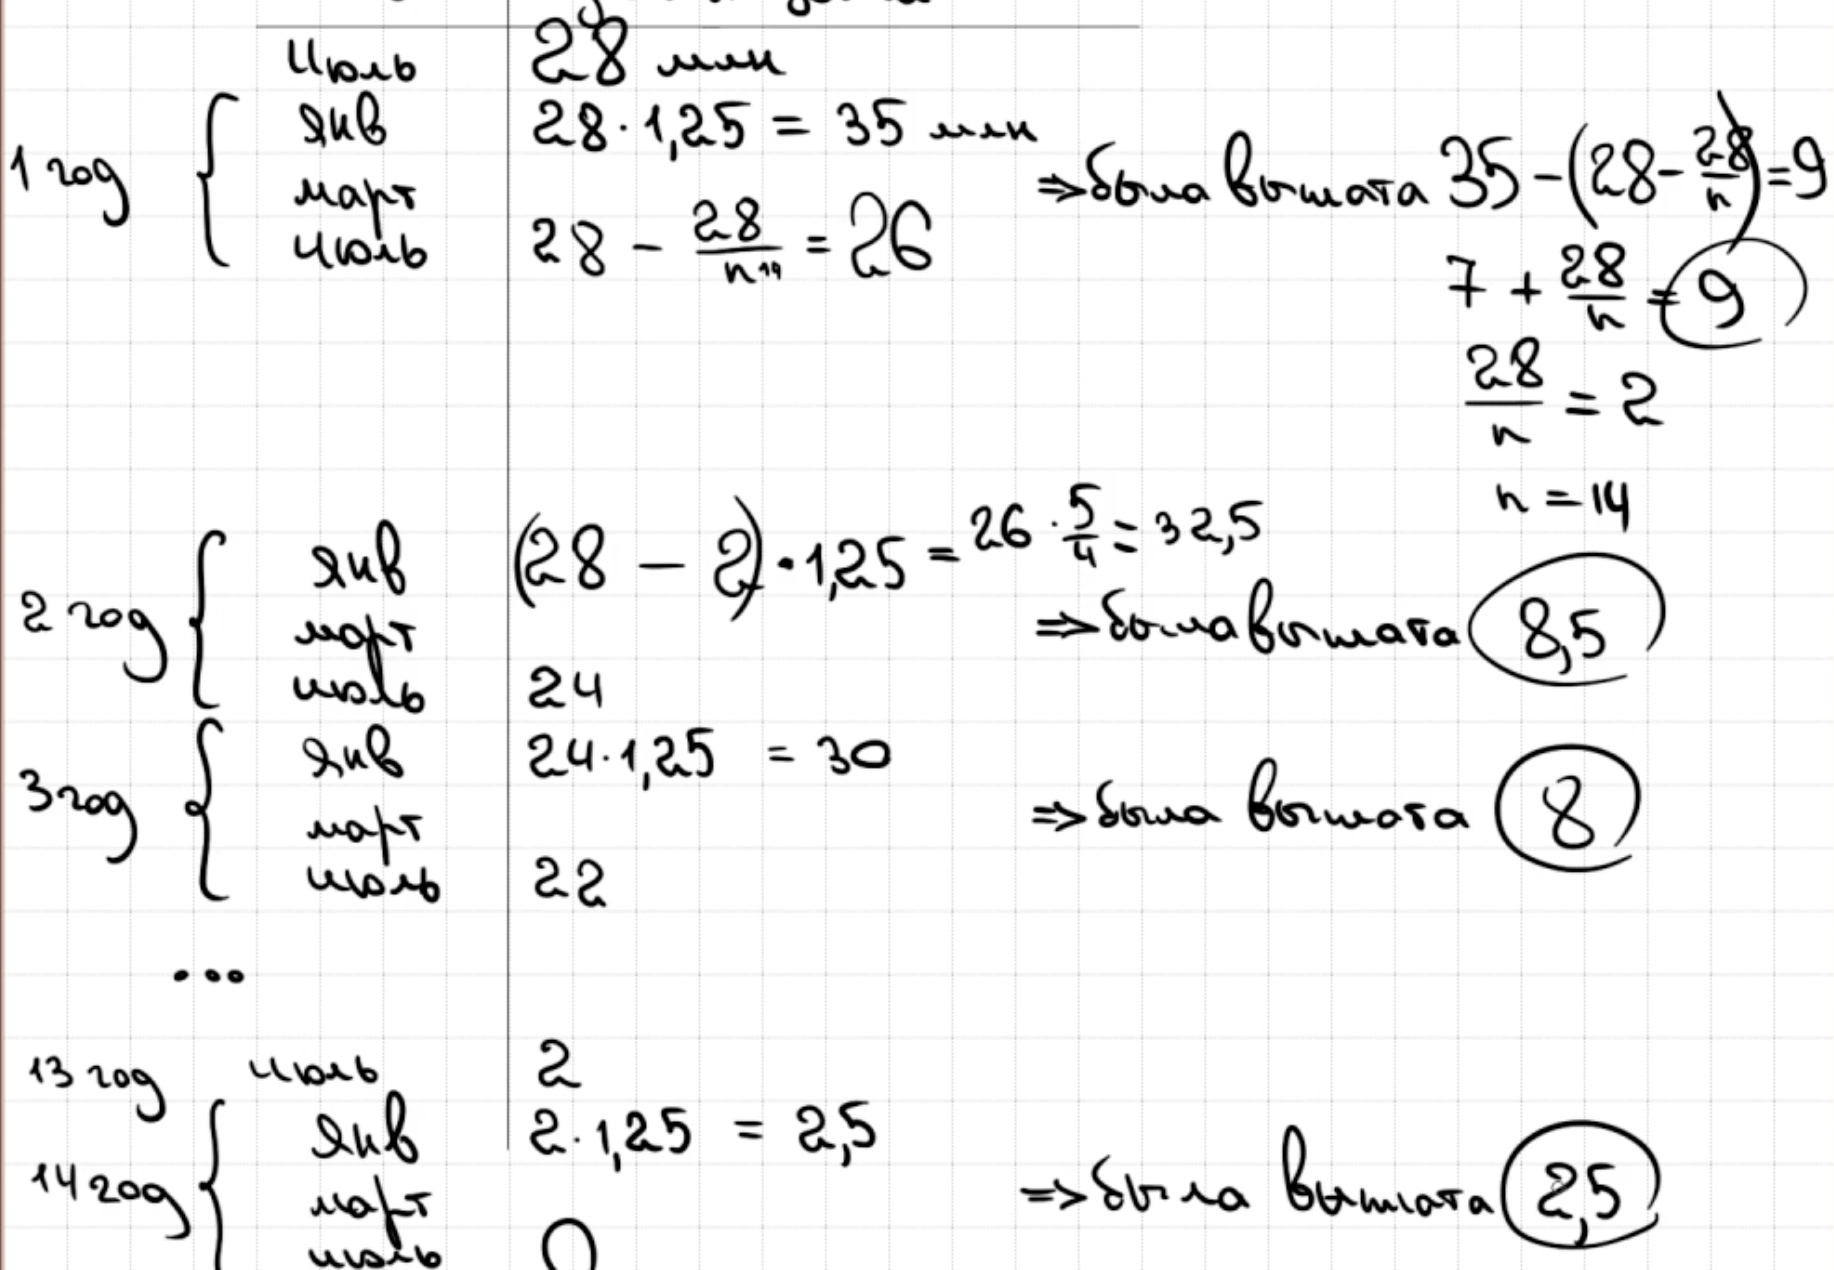 Июль 28 млн
1 год
янв 28 · 1,25 = 35 млн
март
июль 28 - 28/n 14 = 26
⇒ была выплата 35 - (28 - 28/n) = 9
7 + 28/n = 9
28/n = 2
n = 14
2 год
янв (28 - 2) · 1,25 = 26 · 5/4 = 32,5
март ⇒ была выплата 8,5
июль 24
3 год
янв 24 · 1,25 = 30
март ⇒ была выплата 8
июль 22
...
13 год июль 2
14 год
янв 2 · 1,25 = 2,5
март ⇒ была выплата 2,5
июль 0